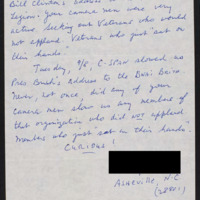 Bill Clinton's address to the
Legion. Your camera men were very
active, seeking out Veterans who would
not applaud. Veterans who just "sat on
their hands."
Tuesday, 9/8, C-Span showed
Pres Bush's address to the
never, not once, did any of your
camera men show us any members of
that organization who did not applaud
members who just "sat on their hands."
CURIOUS!
Asheville, N.C.
(28801)